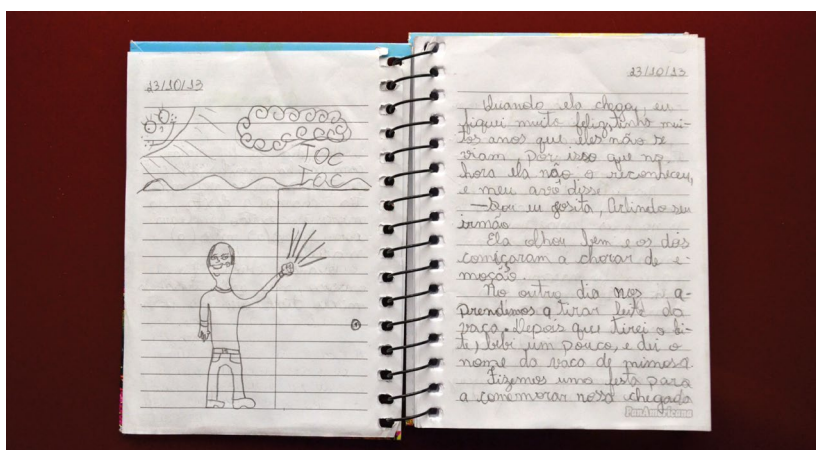 23/10/13
TOC
TOC
23/10/13
Quando ela chegou, eu
fiquei muito feliz, tinha mui-
tos anos que eles não se
viam, por isso que na
hora ela não o reconheceu,
e meu avô disse
— Sou eu Josita, Arlindo seu
irmão
Ela olhou bem e os dos
começaram a chorar de e-
moção.
No outro dia nos a-
prendimos a tirar leite da
vaca. Depois que tirei o lei-
te, bebi um pouco, e dei o
nome da vaca de mimosa
Fizemos uma festa para
a comemorar nossa chegada
PanAmericana